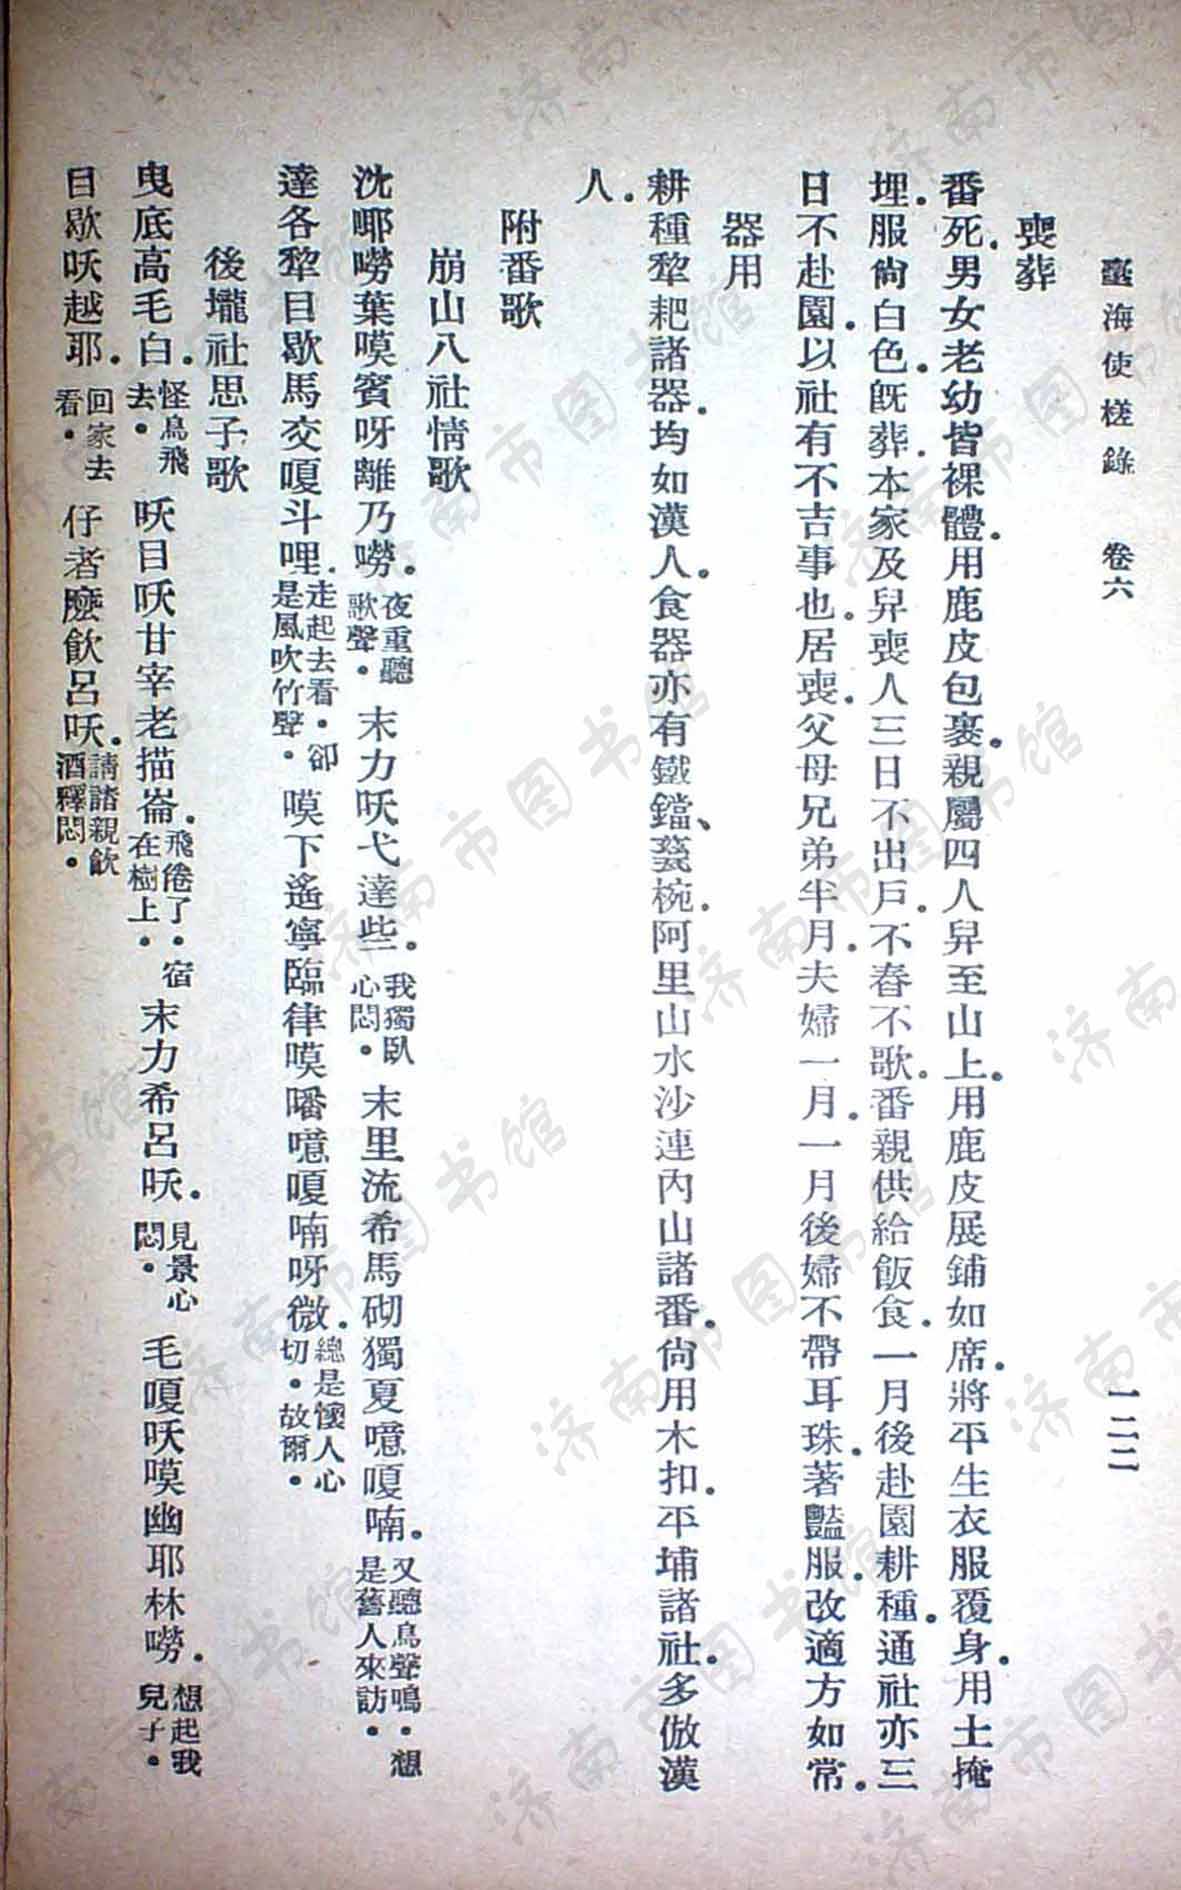 臺海使槎錄　卷六　一二二
喪葬
番死．男女老幼皆裸體．用鹿皮包裹．親屬四人舁至山上．用鹿皮展鋪如席．將平生衣服覆身．用土掩
埋．服尙白色．既葬．本家及舁喪人三日不出戶．不舂不歌．番親供給飯食．一月後赴園耕種．通社亦三
日不赴園．以社有不吉事也．居喪．父母兄弟半月．夫婦一月．一月後婦不帶耳珠．著豔服．改適方如常．
器用
耕種犂耙諸器．均如漢人．食器亦有鐵鐺、甆椀．阿里山水沙連內山諸番．尙用木扣．平埔諸社．多倣漢
人．
附番歌
崩山八社情歌
沈啷嘮葉嘆賓呀離乃嘮．夜重聽歌聲．末力吷弋達些．我獨臥心悶．末里流希馬砌獨夏噫嗄喃．又聽鳥聲鳴．想是舊人來訪．
達各犂目歇馬交嗄斗哩．走起去看．卻是風吹竹聲．嘆下遙寧臨律嘆嶓噫嗄喃呀微．總是懷人心切．故爾．
後壠社思子歌
曳底高毛白．怪鳥飛去．吷目吷甘宰老描崙．飛倦了．宿在樹上．末力希呂吷．見景心悶．毛嗄吷嘆幽耶林嘮．想起我兒子．
目歇吷越耶．回家去看．仔者麼飮呂吷．請諸親飮酒釋悶．
济南市图书馆